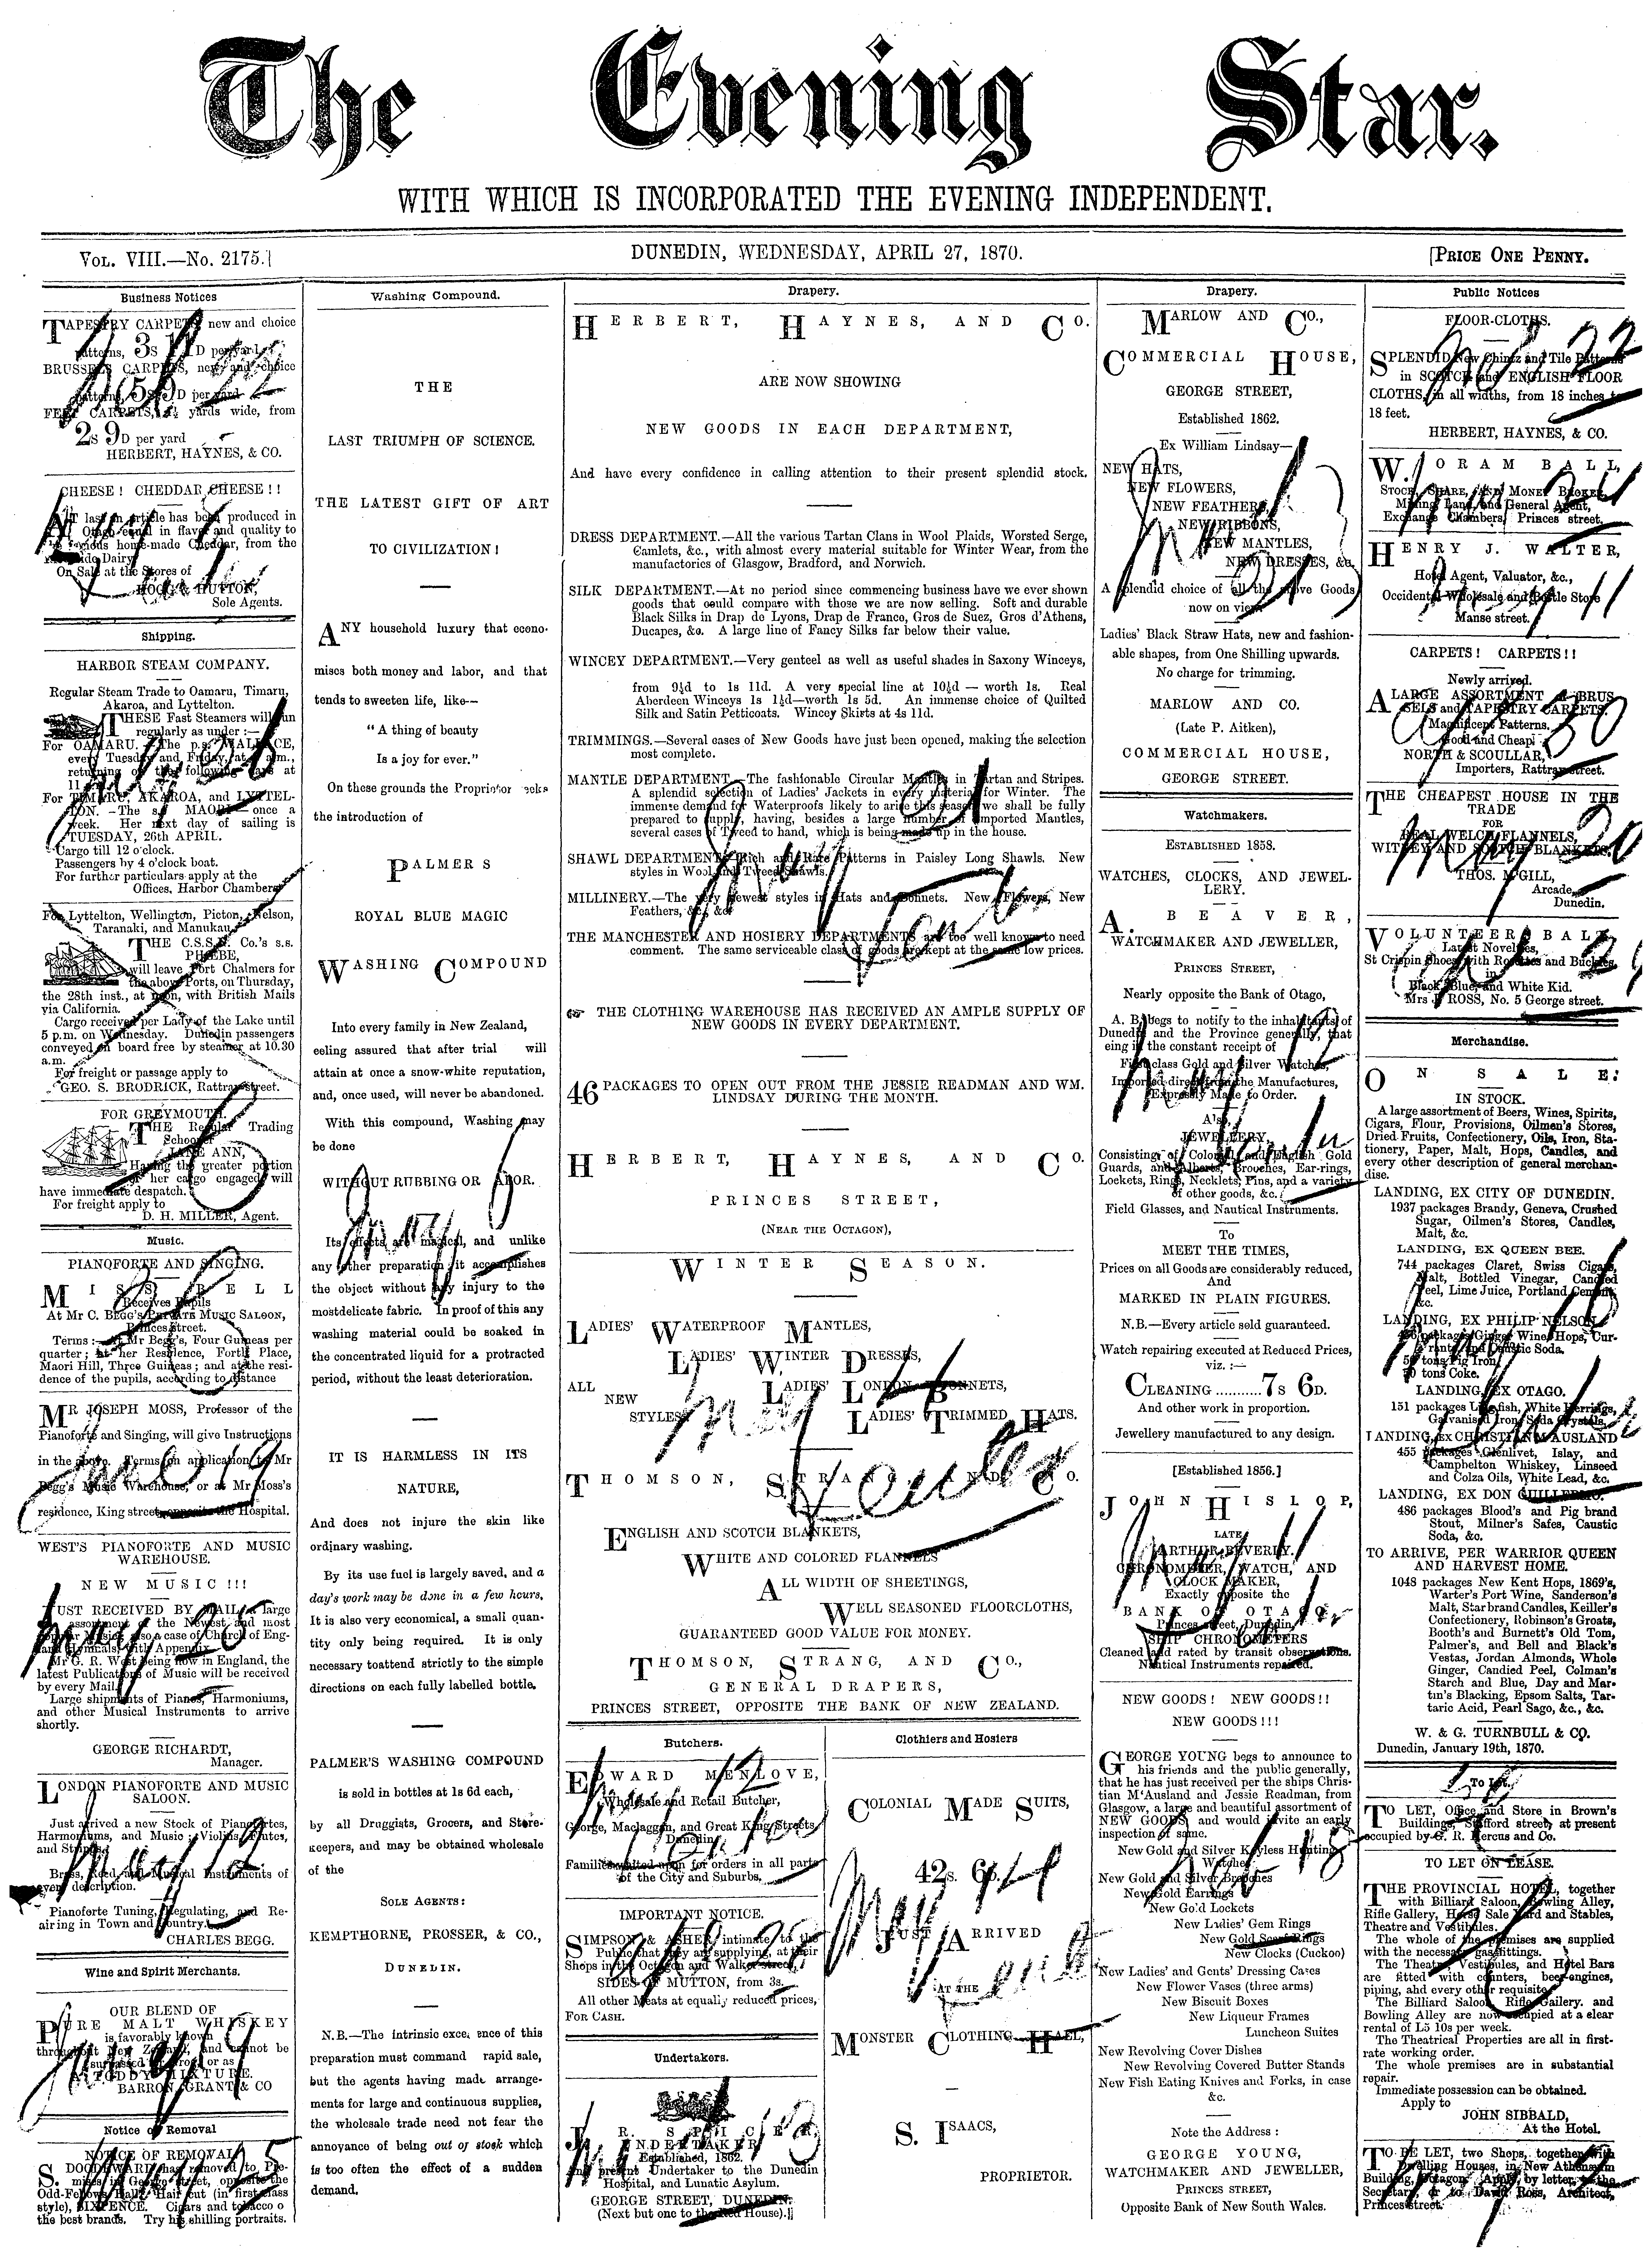 The Evening Star.
WITH WHICH IS INCORPORATED THE EVENING INDEPENDENT.
VOL. VIII.—No. 2175.]
DUNEDIN, WEDNESDAY, APRIL 27, 1870.
[PRICE ONE PENNY.
Business Notices
TAPESTRY CARPETS new and choice
patterns, 3s 11D per yard
BRUSSELS CARPETS, new and choice
patterns, 5s 9D per yard
FELT CARPETS, yards wide, from
2s 9D per yard
HERBERT, HAYNES, & CO.
CHEESE! CHEDDAR CHEESE!!
AT last an article has been produced in
Otago equal in flavor and quality to
the famous home-made Cheddar, from the
Dairy
On Sale at the Stores of
HOGG & HUTTON,
Sole Agents.
Shipping.
HARBOR STEAM COMPANY.
Regular Steam Trade to Oamaru, Timaru,
Akaroa, and Lyttelton.
THESE Fast Steamers will run
regularly as under :—
For OAMARU.—The p.s. WALLACE,
every Tuesday and Friday, at a.m.,
returning on the following days at
11
For TIMARU, AKAROA, and LYTTEL-
TON.—The s.s. MAORI—once a
week. Her next day of sailing is
TUESDAY, 26th APRIL.
Cargo till 12 o'clock.
Passengers by 4 o'clock boat.
For further particulars apply at the
Offices, Harbor Chambers
For Lyttelton, Wellington, Picton, Nelson,
Taranaki, and Manukau.
THE C.S.S.N. Co.'s s.s.
PHŒBE,
will leave Port Chalmers for
the above Ports, on Thursday,
the 28th inst., at noon, with British Mails
via California.
Cargo received per Lady of the Lake until
5 p.m. on Wednesday. Dunedin passengers
conveyed on board free by steamer at 10.30
a.m.
For freight or passage apply to
GEO. S. BRODRICK, Rattray street.
FOR GREYMOUTH.
THE Regular Trading
Schooner
JANE ANN,
Having the greater portion
of her cargo engaged will
have immediate despatch.
For freight apply to
D. H. MILLER, Agent.
Music.
PIANOFORTE AND SINGING.
MISS BELL
Receives Pupils
At Mr C. BEGG'S PRIVATE MUSIC SALOON,
Princes street.
Terms :—At Mr Begg's, Four Guineas per
quarter; at her Residence, Forth Place,
Maori Hill, Three Guineas; and at the resi-
dence of the pupils, according to distance
MR JOSEPH MOSS, Professor of the
Pianoforte and Singing, will give Instructions
in the above. Terms on application to Mr
Begg's Music Warehouse, or at Mr Moss's
residence, King street, opposite the Hospital.
WEST'S PIANOFORTE AND MUSIC
WAREHOUSE.
NEW MUSIC!!!
JUST RECEIVED BY MAIL, a large
assortment of the Newest and most
popular Music; also a case of Church of Eng-
land Hymnals, with Appendix.
Mr G. R. West being now in England, the
latest Publications of Music will be received
by every Mail.
Large shipments of Pianos, Harmoniums,
and other Musical Instruments to arrive
shortly.
GEORGE RICHARDT,
Manager.
LONDON PIANOFORTE AND MUSIC
SALOON.
Just arrived a new Stock of Pianofortes,
Harmoniums, and Music; Violins, Flutes,
and Strings.
Brass, Reed, and Musical Instruments of
every description.
Pianoforte Tuning, Regulating, and Re-
airing in Town and Country.
CHARLES BEGG.
Wine and Spirit Merchants.
OUR BLEND OF
PURE MALT WHISKEY
is favorably known
throughout New Zealand, and cannot be
surpassed for Grog, or as
A TODDY MIXTURE.
BARRON, GRANT & CO
Notice of Removal
NOTICE OF REMOVAL
S. DOODEWARD has removed to Pre-
mises in George street, opposite the
Odd-Fellows' Hall. Hair cut (in first-class
style), SIXPENCE. Cigars and tobacco o
the best brands. Try his shilling portraits.
Washing Compound.
THE
LAST TRIUMPH OF SCIENCE.
THE LATEST GIFT OF ART
TO CIVILIZATION!
ANY household luxury that econo-
mises both money and labor, and that
tends to sweeten life, like—
"A thing of beauty
Is a joy for ever."
On these grounds the Proprietor eeks
the introduction of
PALMERS
ROYAL BLUE MAGIC
WASHING COMPOUND
Into every family in New Zealand,
eeling assured that after trial will
attain at once a snow-white reputation,
and, once used, will never be abandoned.
With this compound, Washing may
be done
WITHOUT RUBBING OR LABOR.
Its effects are magical, and unlike
any other preparation it accomplishes
the object without any injury to the
mostdelicate fabric. In proof of this any
washing material could be soaked in
the concentrated liquid for a protracted
period, without the least deterioration.
IT IS HARMLESS IN ITS
NATURE,
And does not injure the skin like
ordinary washing.
By its use fuel is largely saved, and a
day's work may be done in a few hours.
It is also very economical, a small quan-
tity only being required. It is only
necessary toattend strictly to the simple
directions on each fully labelled bottle.
PALMER'S WASHING COMPOUND
is sold in bottles at 1s 6d each,
by all Druggists, Grocers, and Store-
keepers, and may be obtained wholesale
of the
SOLE AGENTS:
KEMPTHORNE, PROSSER, & CO.,
DUNEDIN.
N.B.—The intrinsic exce ence of this
preparation must command rapid sale,
but the agents having made arrange-
ments for large and continuous supplies,
the wholesale trade need not fear the
annoyance of being out of stock which
is too often the effect of a sudden
demand.
Drapery.
HERBERT, HAYNES, AND CO.
ARE NOW SHOWING
NEW GOODS IN EACH DEPARTMENT,
And have every confidence in calling attention to their present splendid stock.
DRESS DEPARTMENT.—All the various Tartan Clans in Wool Plaids, Worsted Serge,
Camlets, &c., with almost every material suitable for Winter Wear, from the
manufactories of Glasgow, Bradford, and Norwich.
SILK DEPARTMENT.—At no period since commencing business have we ever shown
goods that could compare with those we are now selling. Soft and durable
Black Silks in Drap de Lyons, Drap de France, Gros de Suez, Gros d'Athens,
Ducapes, &c. A large line of Fancy Silks far below their value.
WINCEY DEPARTMENT.—Very genteel as well as useful shades in Saxony Winceys,
from 9½d to 1s 11d. A very special line at 10½d — worth 1s. Real
Aberdeen Winceys 1s 1½d—worth 1s 5d. An immense choice of Quilted
Silk and Satin Petticoats. Wincey Skirts at 4s 11d.
TRIMMINGS.—Several cases of New Goods have just been opened, making the selection
most complete.
MANTLE DEPARTMENT.—The fashionable Circular Mantles in Tartan and Stripes.
A splendid selection of Ladies' Jackets in every material for Winter. The
immense demand for Waterproofs likely to arise this season we shall be fully
prepared to supply, having, besides a large number of imported Mantles,
several cases of Tweed to hand, which is being made up in the house.
SHAWL DEPARTMENT.—Rich and Rare Patterns in Paisley Long Shawls. New
styles in Wool and Tweed Shawls.
MILLINERY.—The very newest styles in Hats and Bonnets. New Flowers, New
Feathers, &c., &c.
THE MANCHESTER AND HOSIERY DEPARTMENTS are too well known to need
comment. The same serviceable class of goods are kept at the same low prices.
☞ THE CLOTHING WAREHOUSE HAS RECEIVED AN AMPLE SUPPLY OF
NEW GOODS IN EVERY DEPARTMENT.
46 PACKAGES TO OPEN OUT FROM THE JESSIE READMAN AND WM.
LINDSAY DURING THE MONTH.
HERBERT, HAYNES, AND CO.
PRINCES STREET,
(NEAR THE OCTAGON),
WINTER SEASON.
LADIES' WATERPROOF MANTLES,
LADIES' WINTER DRESSES,
ALL NEW STYLES
LADIES' LONDON BONNETS,
LADIES' TRIMMED HATS.
THOMSON, STRANG, AND CO.
ENGLISH AND SCOTCH BLANKETS,
WHITE AND COLORED FLANNELS
ALL WIDTH OF SHEETINGS,
WELL SEASONED FLOORCLOTHS,
GUARANTEED GOOD VALUE FOR MONEY.
THOMSON, STRANG, AND CO.,
GENERAL DRAPERS,
PRINCES STREET, OPPOSITE THE BANK OF NEW ZEALAND.
Butchers.
EDWARD MENLOVE,
Wholesale and Retail Butcher,
George, Maclaggan, and Great King Streets
Dunedin.
Families waited upon for orders in all parts
of the City and Suburbs.
IMPORTANT NOTICE.
SIMPSON & ASHER intimate to the
Public that they are supplying, at their
Shops in the Octagon and Walker street,
SIDES OF MUTTON, from 3s.
All other Meats at equally reduced prices,
FOR CASH.
Undertakers.
J. R. SPICER
UNDERTAKER
Established, 1862.
present Undertaker to the Dunedin
Hospital, and Lunatic Asylum.
GEORGE STREET, DUNEDIN.
(Next but one to the Red House).]
Clothiers and Hosiers
COLONIAL MADE SUITS,
42s. 6D.
JUST ARRIVED
AT THE
MONSTER CLOTHING HALL,
S. ISAACS,
PROPRIETOR.
Drapery.
MARLOW AND CO.,
COMMERCIAL HOUSE,
GEORGE STREET,
Established 1862.
Ex William Lindsay—
NEW HATS,
NEW FLOWERS,
NEW FEATHERS,
NEW RIBBONS,
NEW MANTLES,
NEW DRESSES, &c.
A splendid choice of all the above Goods
now on view.
Ladies' Black Straw Hats, new and fashion-
able shapes, from One Shilling upwards.
No charge for trimming.
MARLOW AND CO.
(Late P. Aitken),
COMMERCIAL HOUSE,
GEORGE STREET.
Watchmakers.
ESTABLISHED 1858.
WATCHES, CLOCKS, AND JEWEL-
LERY.
A. BEAVER,
WATCHMAKER AND JEWELLER,
PRINCES STREET,
Nearly opposite the Bank of Otago,
A. B. begs to notify to the inhabitants of
Dunedin and the Province generally, that
eing in the constant receipt of
First-class Gold and Silver Watches,
Imported direct from the Manufactures,
Expressly Made to Order.
Also,
JEWELLERY,
Consisting of Colonial and English Gold
Guards, and Alberts, Brooches, Ear-rings,
Lockets, Rings, Necklets, Pins, and a variety
of other goods, &c.
Field Glasses, and Nautical Instruments.
To
MEET THE TIMES,
Prices on all Goods are considerably reduced,
And
MARKED IN PLAIN FIGURES.
N.B.—Every article sold guaranteed.
Watch repairing executed at Reduced Prices,
viz. :—
CLEANING ..........7s 6D.
And other work in proportion.
Jewellery manufactured to any design.
[Established 1856.]
JOHN HISLOP,
LATE
ARTHUR BEVERLY.
CHRONOMETER, WATCH, AND
CLOCK MAKER,
Exactly opposite the
BANK OF OTAGO,
Princes street, Dunedin.
SHIP CHRONOMETERS
Cleaned and rated by transit observations.
Nautical Instruments repaired.
NEW GOODS! NEW GOODS!!
NEW GOODS!!!
GEORGE YOUNG begs to announce to
his friends and the public generally,
that he has just received per the ships Chris-
tian M'Ausland and Jessie Readman, from
Glasgow, a large and beautiful assortment of
NEW GOODS, and would invite an early
inspection of same.
New Gold and Silver Keyless Hunting
Watches
New Gold and Silver Brooches
New Gold Earrings
New Gold Lockets
New Ladies' Gem Rings
New Gold Scarf Rings
New Clocks (Cuckoo)
New Ladies' and Gents' Dressing Cases
New Flower Vases (three arms)
New Biscuit Boxes
New Liqueur Frames
Luncheon Suites
New Revolving Cover Dishes
New Revolving Covered Butter Stands
New Fish Eating Knives and Forks, in case
&c.
Note the Address:
GEORGE YOUNG,
WATCHMAKER AND JEWELLER,
PRINCES STREET,
Opposite Bank of New South Wales.
Public Notices
FLOOR-CLOTHS.
SPLENDID New Chintz and Tile Patterns
in SCOTCH and ENGLISH FLOOR
CLOTHS, in all widths, from 18 inches to
18 feet.
HERBERT, HAYNES, & CO.
W. ORAM BALL,
STOCK, SHARE, AND MONEY BROKER,
Mining, Land, and General Agent,
Exchange Chambers, Princes street.
HENRY J. WALTER,
Hotel Agent, Valuator, &c.,
Occidental Wholesale and Bottle Store
Manse street.
CARPETS! CARPETS!!
Newly arrived.
A LARGE ASSORTMENT of BRUS-
SELS and TAPESTRY CARPETS.
Magnificent Patterns.
Good and Cheap.
NORTH & SCOULLAR,
Importers, Rattray street.
THE CHEAPEST HOUSE IN THE
TRADE
FOR
REAL WELCH FLANNELS,
WITNEY AND SCOTCH BLANKETS.
THOS. M'GILL,
Arcade,
Dunedin.
VOLUNTEERS BALL
Latest Novelties,
St Crispin Shoes, with Rosettes and Buckles,
in
Black, Blue, and White Kid.
Mrs J. ROSS, No. 5 George street.
Merchandise.
ON SALE:
IN STOCK.
A large assortment of Beers, Wines, Spirits,
Cigars, Flour, Provisions, Oilmen's Stores,
Dried Fruits, Confectionery, Oils, Iron, Sta-
tionery, Paper, Malt, Hops, Candles, and
every other description of general merchan-
dise.
LANDING, EX CITY OF DUNEDIN.
1937 packages Brandy, Geneva, Crushed
Sugar, Oilmen's Stores, Candles,
Malt, &c.
LANDING, EX QUEEN BEE.
744 packages Claret, Swiss Cigars,
Malt, Bottled Vinegar, Candied
Peel, Lime Juice, Portland Cement,
&c.
LANDING, EX PHILIP NELSON
packages Ginger Wine, Hops, Cur-
rants, and Caustic Soda.
tons Pig Iron.
tons Coke.
LANDING, EX OTAGO.
151 packages Lingfish, White Herrings,
Galvanised Iron, Soda Crystals.
LANDING, EX CHRISTIAN M'AUSLAND
455 packages Glenlivet, Islay, and
Campbelton Whiskey, Linseed
and Colza Oils, White Lead, &c.
LANDING, EX DON GUILLERMO.
486 packages Blood's and Pig brand
Stout, Milner's Safes, Caustic
Soda, &c.
TO ARRIVE, PER WARRIOR QUEEN
AND HARVEST HOME.
1048 packages New Kent Hops, 1869's,
Warter's Port Wine, Sanderson's
Malt, Star brand Candles, Keiller's
Confectionery, Robinson's Groats,
Booth's and Burnett's Old Tom,
Palmer's, and Bell and Black's
Vestas, Jordan Almonds, Whole
Ginger, Candied Peel, Colman's
Starch and Blue, Day and Mar-
tin's Blacking, Epsom Salts, Tar-
taric Acid, Pearl Sago, &c., &c.
W. & G. TURNBULL & CO.
Dunedin, January 19th, 1870.
To Let.
TO LET, Office and Store in Brown's
Buildings, Stafford street, at present
occupied by G. R. Hercus and Co.
TO LET ON LEASE.
THE PROVINCIAL HOTEL, together
with Billiard Saloon, Bowling Alley,
Rifle Gallery, Horse Sale Yard and Stables,
Theatre and Vestibules.
The whole of the premises are supplied
with the necessary gasfittings.
The Theatre, Vestibules, and Hotel Bars
are fitted with counters, beer-engines,
piping, and every other requisite.
The Billiard Saloon, Rifle Gallery. and
Bowling Alley are now occupied at a clear
rental of L5 10s per week.
The Theatrical Properties are all in first-
rate working order.
The whole premises are in substantial
repair.
Immediate possession can be obtained.
Apply to
JOHN SIBBALD,
At the Hotel.
TO BE LET, two Shops, together with
Dwelling Houses, in New Athenæum
Building, Octagon. Apply, by letter, to the
Secretary, or to David Ross, Architect,
Princes street.